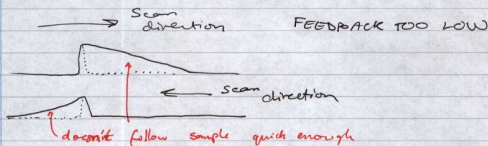 Scan direction
FEEDBACK TOO LOW
Scan direction
doesn't follow sample quick enough